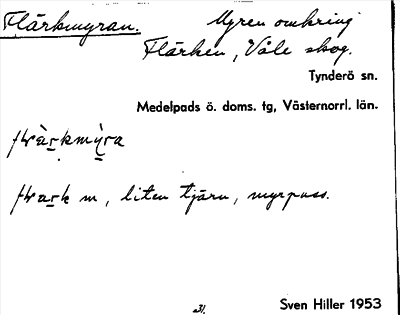 Flärkmyran. Myren omkring
Flärken, Våle skog.
Tynderö sn.
Medelpads ö. doms. tg, Västernorrl. län.
m, liten tjärn, myrpuss.
Sven Hiller 1953